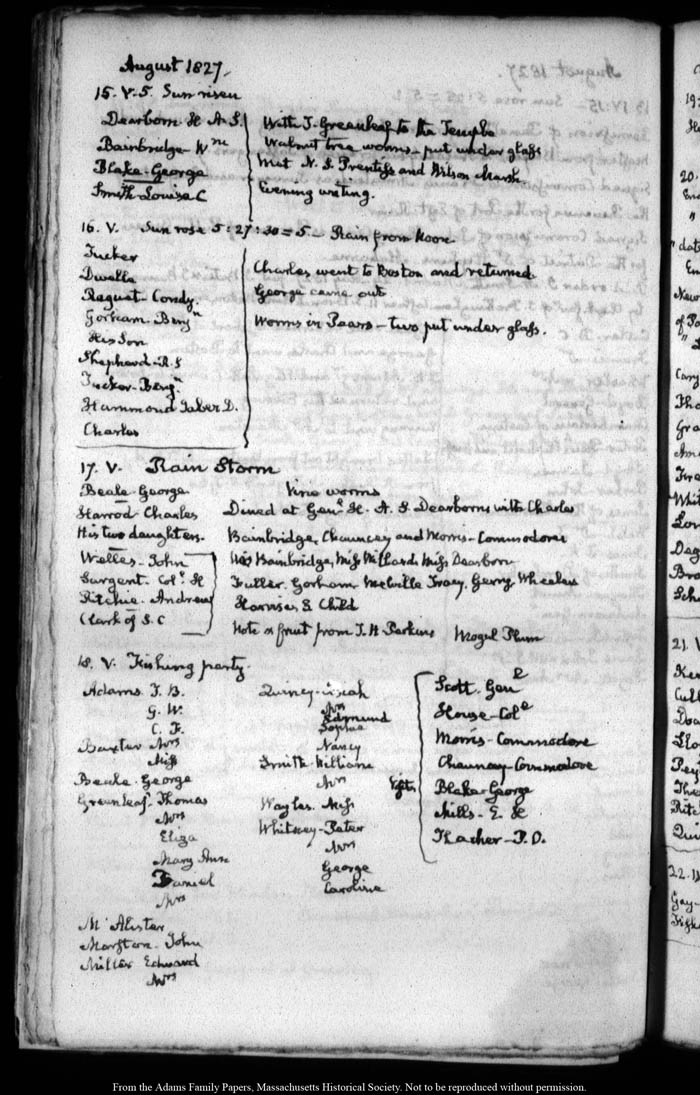 August 1827.
15. V. 5. Sun risen
Dearborn H. A. S.
Bainbridge - Wm
Blake - George
Smith Louisa C
With T. Greenleaf to the Temple
Walnut tree worms - put under glass
Met N. S. Prentiss and Wilson Marsh
Evening writing.
16. V. Sun rose 5:27:30 = 5 - Rain from Noon
Tucker
Dwelle
Raguet - Condy
Gorham - Benjn
His Son
Shepherd - R. S
Tucker - Benjn
Hammond Jaber D.
Charles
Charles went to Boston and returned
George came out
Worms in Pears - two put under glass.
17. V. Rain Storm
Beale - George
Harrod Charles
His two daughters.
Welles - John
Sargent. Col. H
Ritchie. Andrew
Clark of S. C
Vine worms
Dined at Genl H. A. S Dearborns with Charles
Bainbridge, Chauncey and Morris - Commodores
Bainbridge, Miss Willard Miss Dearborn
Fuller. Gorham Melville Tracy. Gerry Wheeler
Harrises & Child
Note & fruit from T. H Perkins Mogul Plum
18. V. Fishing party.
Adams T. B.
G. W.
C. F.
Baxter Mrs
Miss
Beale - George
Greenleaf. Thomas
Mrs
Eliza
Mary Ann
Daniel
Mrs
M'Alister
Marston - John
Miller Edward
Mrs
Quincy - Josiah
Mrs
Edmund
Sophia
Nancy
Smith - William
Mrs
Wayles. Miss
Whitney - Peter
Mrs
George
Caroline
Visits
Scott. Genl
House - Col
Morris - Commodore
Chauncey - Commodore
Blake - George
Mills - E. H
Thacher - P. O.
From the Adams Family Papers, Massachusetts Historical Society. Not to be reproduced without permission.